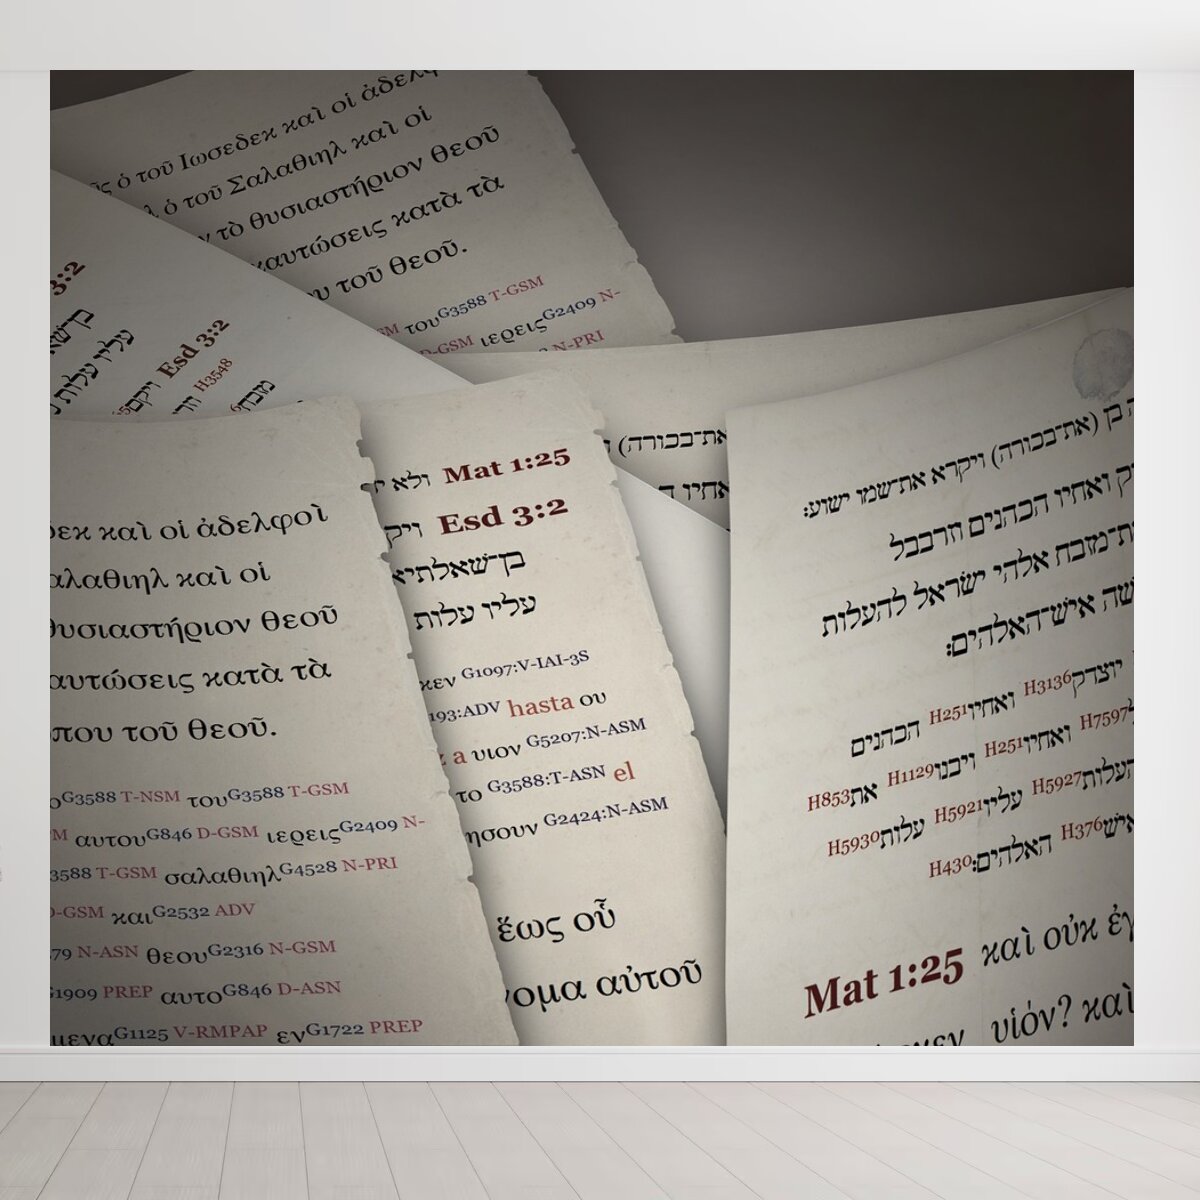 ὁ τοῦ Ιωσεδεκ καὶ οἱ
ὁ τοῦ Σαλαθιηλ καὶ οἱ
τὸ θυσιαστήριον θεοῦ
κατὰ τὰ
τοῦ θεοῦ.
τουG3588 T-GSM
D-GSM ιερειςG2409 N-
N-PRI
3:2
עליו עלות
Esd 3:2
H3548
καὶ οἱ ἀδελφοὶ
καὶ οἱ
θυσιαστήριον θεοῦ
κατὰ τὰ
που τοῦ θεοῦ.
G3588 T-NSM τουG3588 T-GSM
αυτουG846 D-GSM ιερειςG2409 N-
3588 T-GSM σαλαθιηλG4528 N-PRI
D-GSM καιG2532 ADV
79 N-ASN θεουG2316 N-GSM
G1909 PREP αυτοG846 D-ASN
μεναG1125 V-RMPAP ενG1722 PREP
Mat 1:25 ולא
Esd 3:2
בן־שאלתיא
עליו עלות
κεν G1097:V-IAI-3S
193:ADV hasta ου
a υιον G5207:N-ASM
το G3588:T-ASN el
ησουν G2424:N-ASM
ἕως οὗ
νομα αὐτοῦ
את־בכורה)
אחיו
בן (את־בכורה) ויקרא את־שמו ישוע:
ואחיו הכהנים וזרבבל
ת־מזבח אלהי ישראל להעלות
שה איש־האלהים:
יוצדקH3136 ואחיוH251 הכהנים
H7597 ואחיוH251 ויבנוH1129 אתH853
העלותH5927 עליוH5921 עלותH5930
אישH376 האלהים:H430
Mat 1:25 καὶ οὐκ ἐγ
υἱόν? καὶ